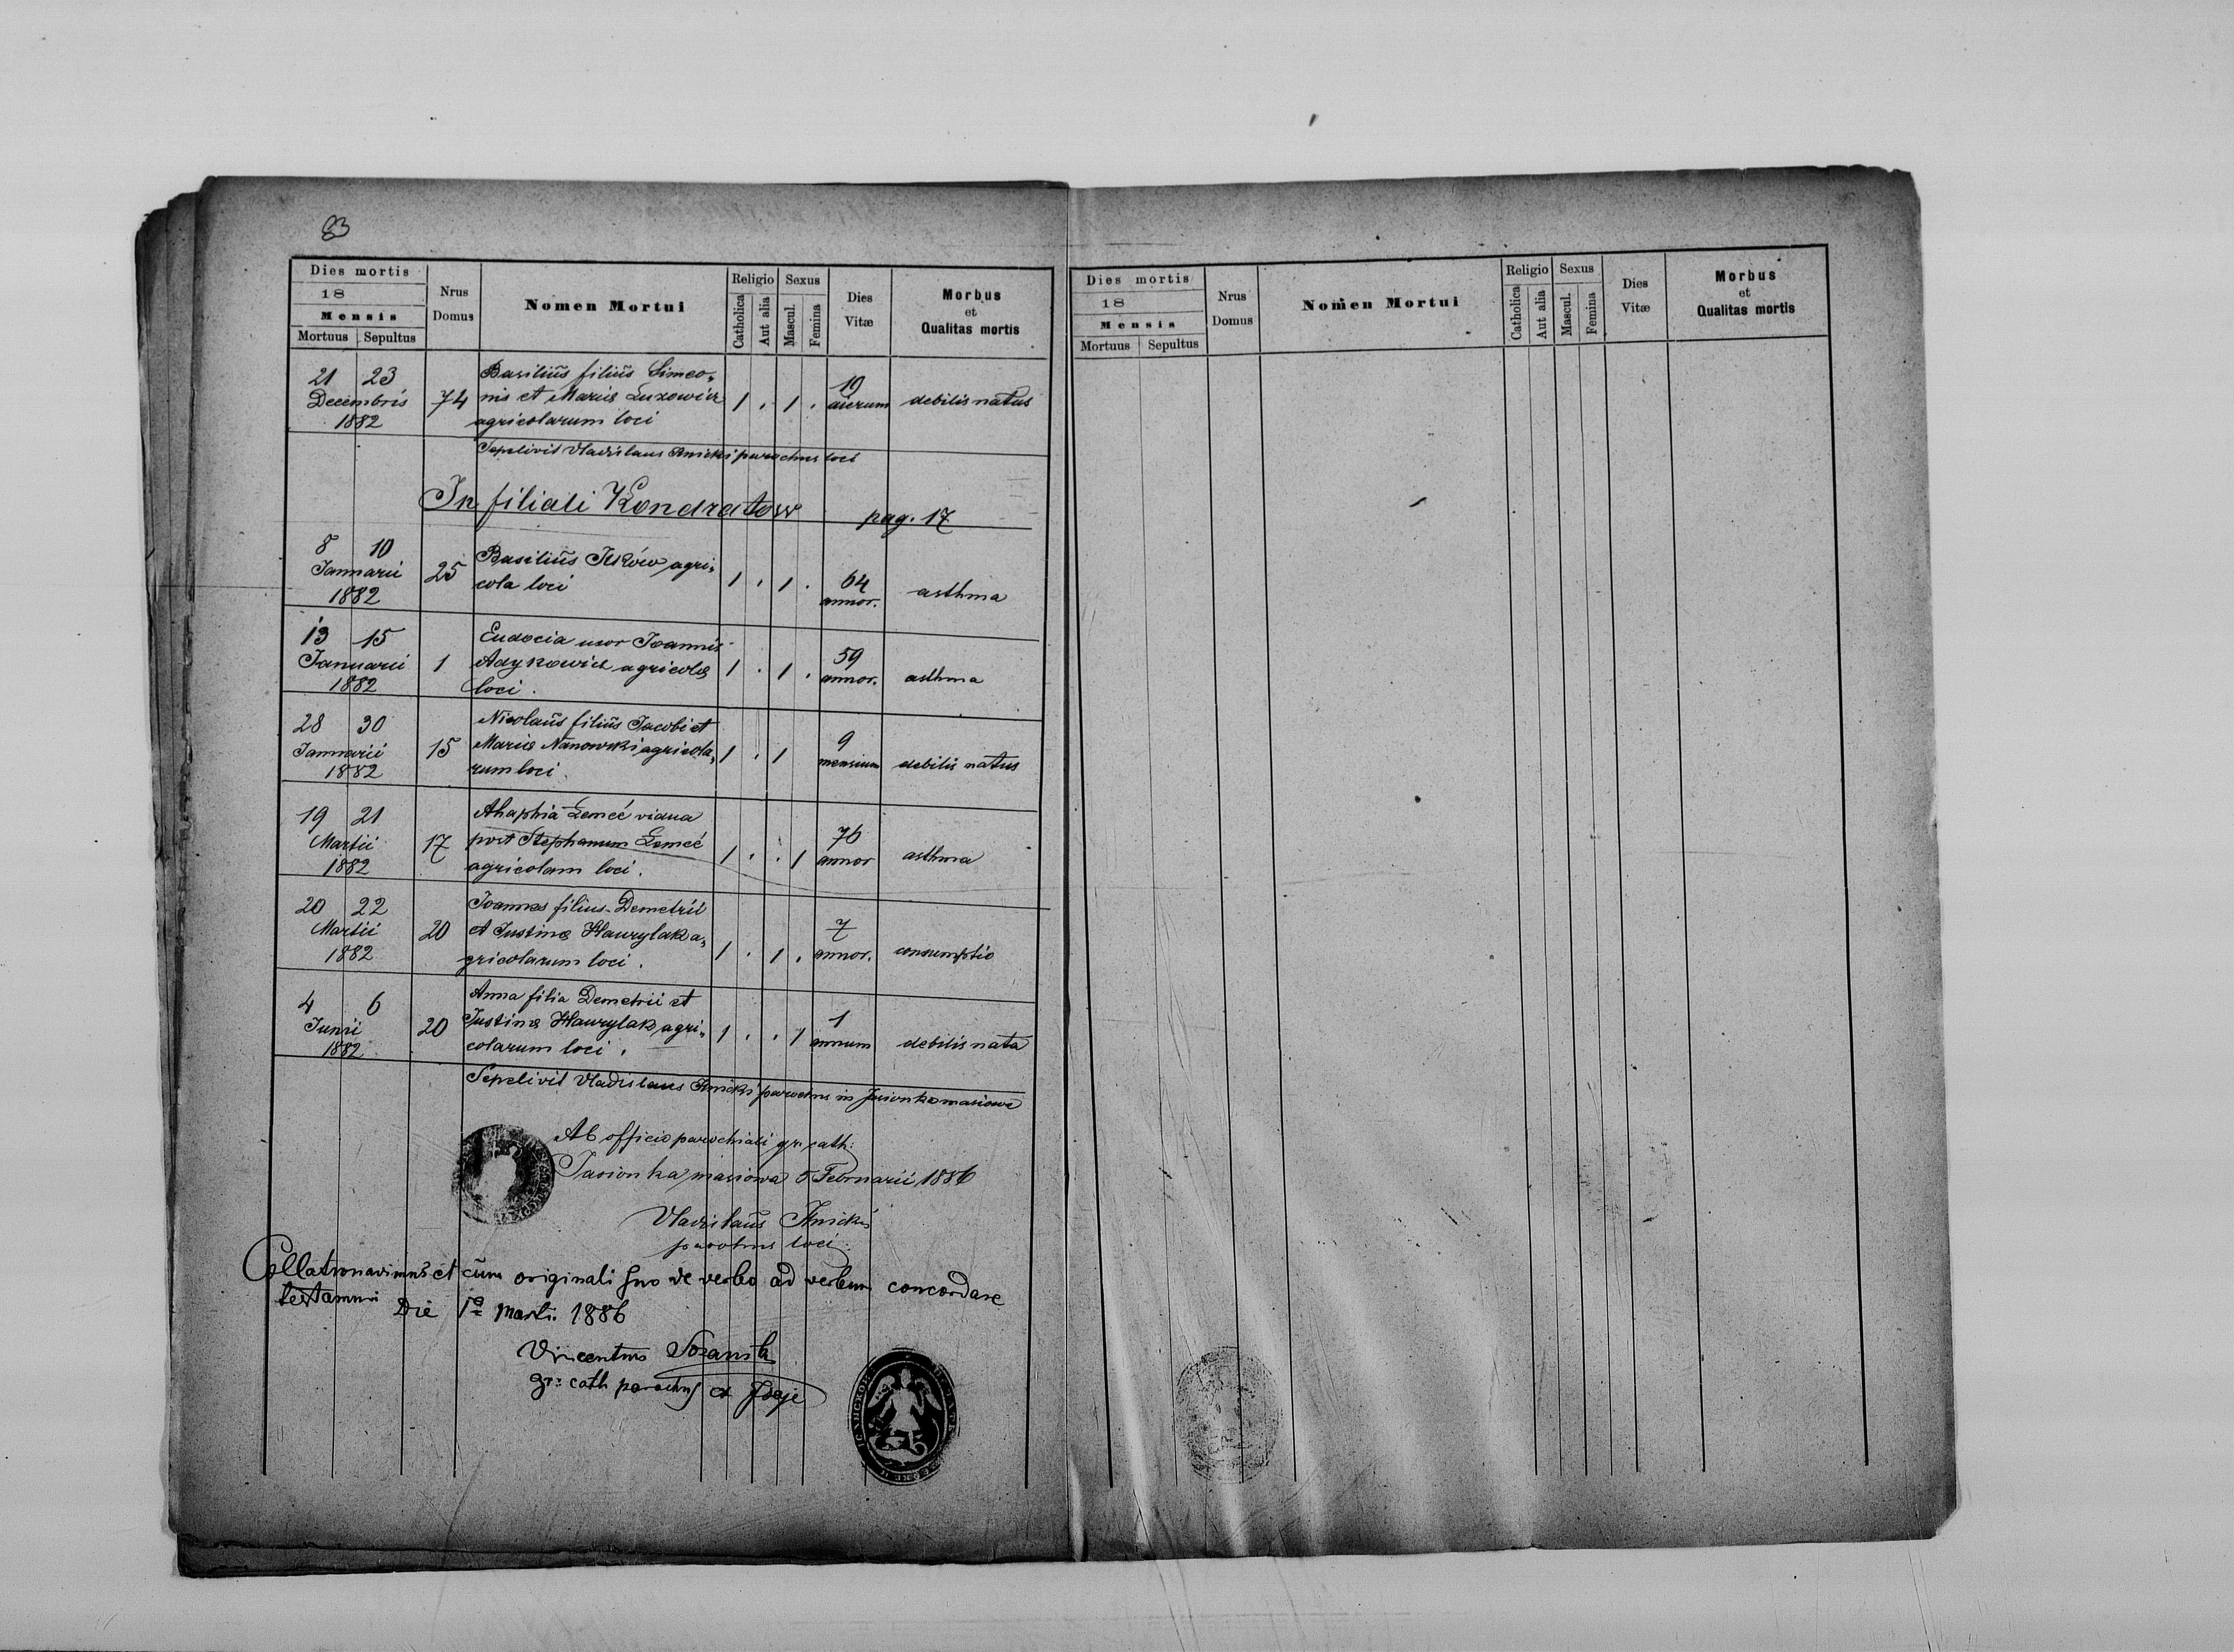 83
Dies mortis
18
Mensis
Mortuus Sepultus
Nrus Domus
Nomen Mortui
Religio
Catholica
Aut alia
Sexus
Mascul.
Femina
Dies Vitæ
Morbus et Qualitas mortis
21 23
Decembris
1882
74
Basiliŭs filiŭs Simeo„
nis et Mariæ Luxowicz
agricolarum loci
1 . 1 .
19
dierum
debilis natus
Sepelivit Vladislaus parochus loci
In filiali Kondratow pag. 17
8 10
Januarii
1882
25
Basiliŭs Ilków agri„
cola loci
1 . 1 .
64
annor.
asthma
13 15
Januarii
1882
1
Eudocia uxor Joannis
Adykowicz agricolæ
loci.
1 . 1 .
59
annor.
asthma
28 30
Januarii
1882
15
Nicolaŭs filiŭs Jacobi et
Mariæ Nanowski agricola„
rum loci.
1 . 1
9
mensium
debilis natus
19 21
Martii
1882
17
Ahaphia Łemeć vidua
post Stephanum Łemeć
agricolam loci.
1 . . 1
76
annor
asthma
20 22
Martii
1882
20
Joannes filius Demetrii
et Justinæ Hawrylak a„
gricolarum loci.
1 . 1 .
7
annor.
consumptio
4 6
Junii
1882
20
Anna filia Demetrii et
Justinæ Hawrylak agri„
colarum loci.
1 . . 1
1
annum
debilis nata
Sepelivit Vladislaus parochus in Jasionka masiowa
Ab officio parochiali gr. cath:
Jasionka masiowa 5 Februarii 1886
Vladislaŭs
parochus loci.
Collationavimus et cŭm originali suo de verbo ad verbum concordare
testamur
Die 1ª Marti. 1886
Vincentius
gr: cath parochus
Dies mortis
18
Mensis
Mortuus Sepultus
Nrus Domus
Nomen Mortui
Religio
Catholica
Aut alia
Sexus
Mascul.
Femina
Dies Vitæ
Morbus et Qualitas mortis